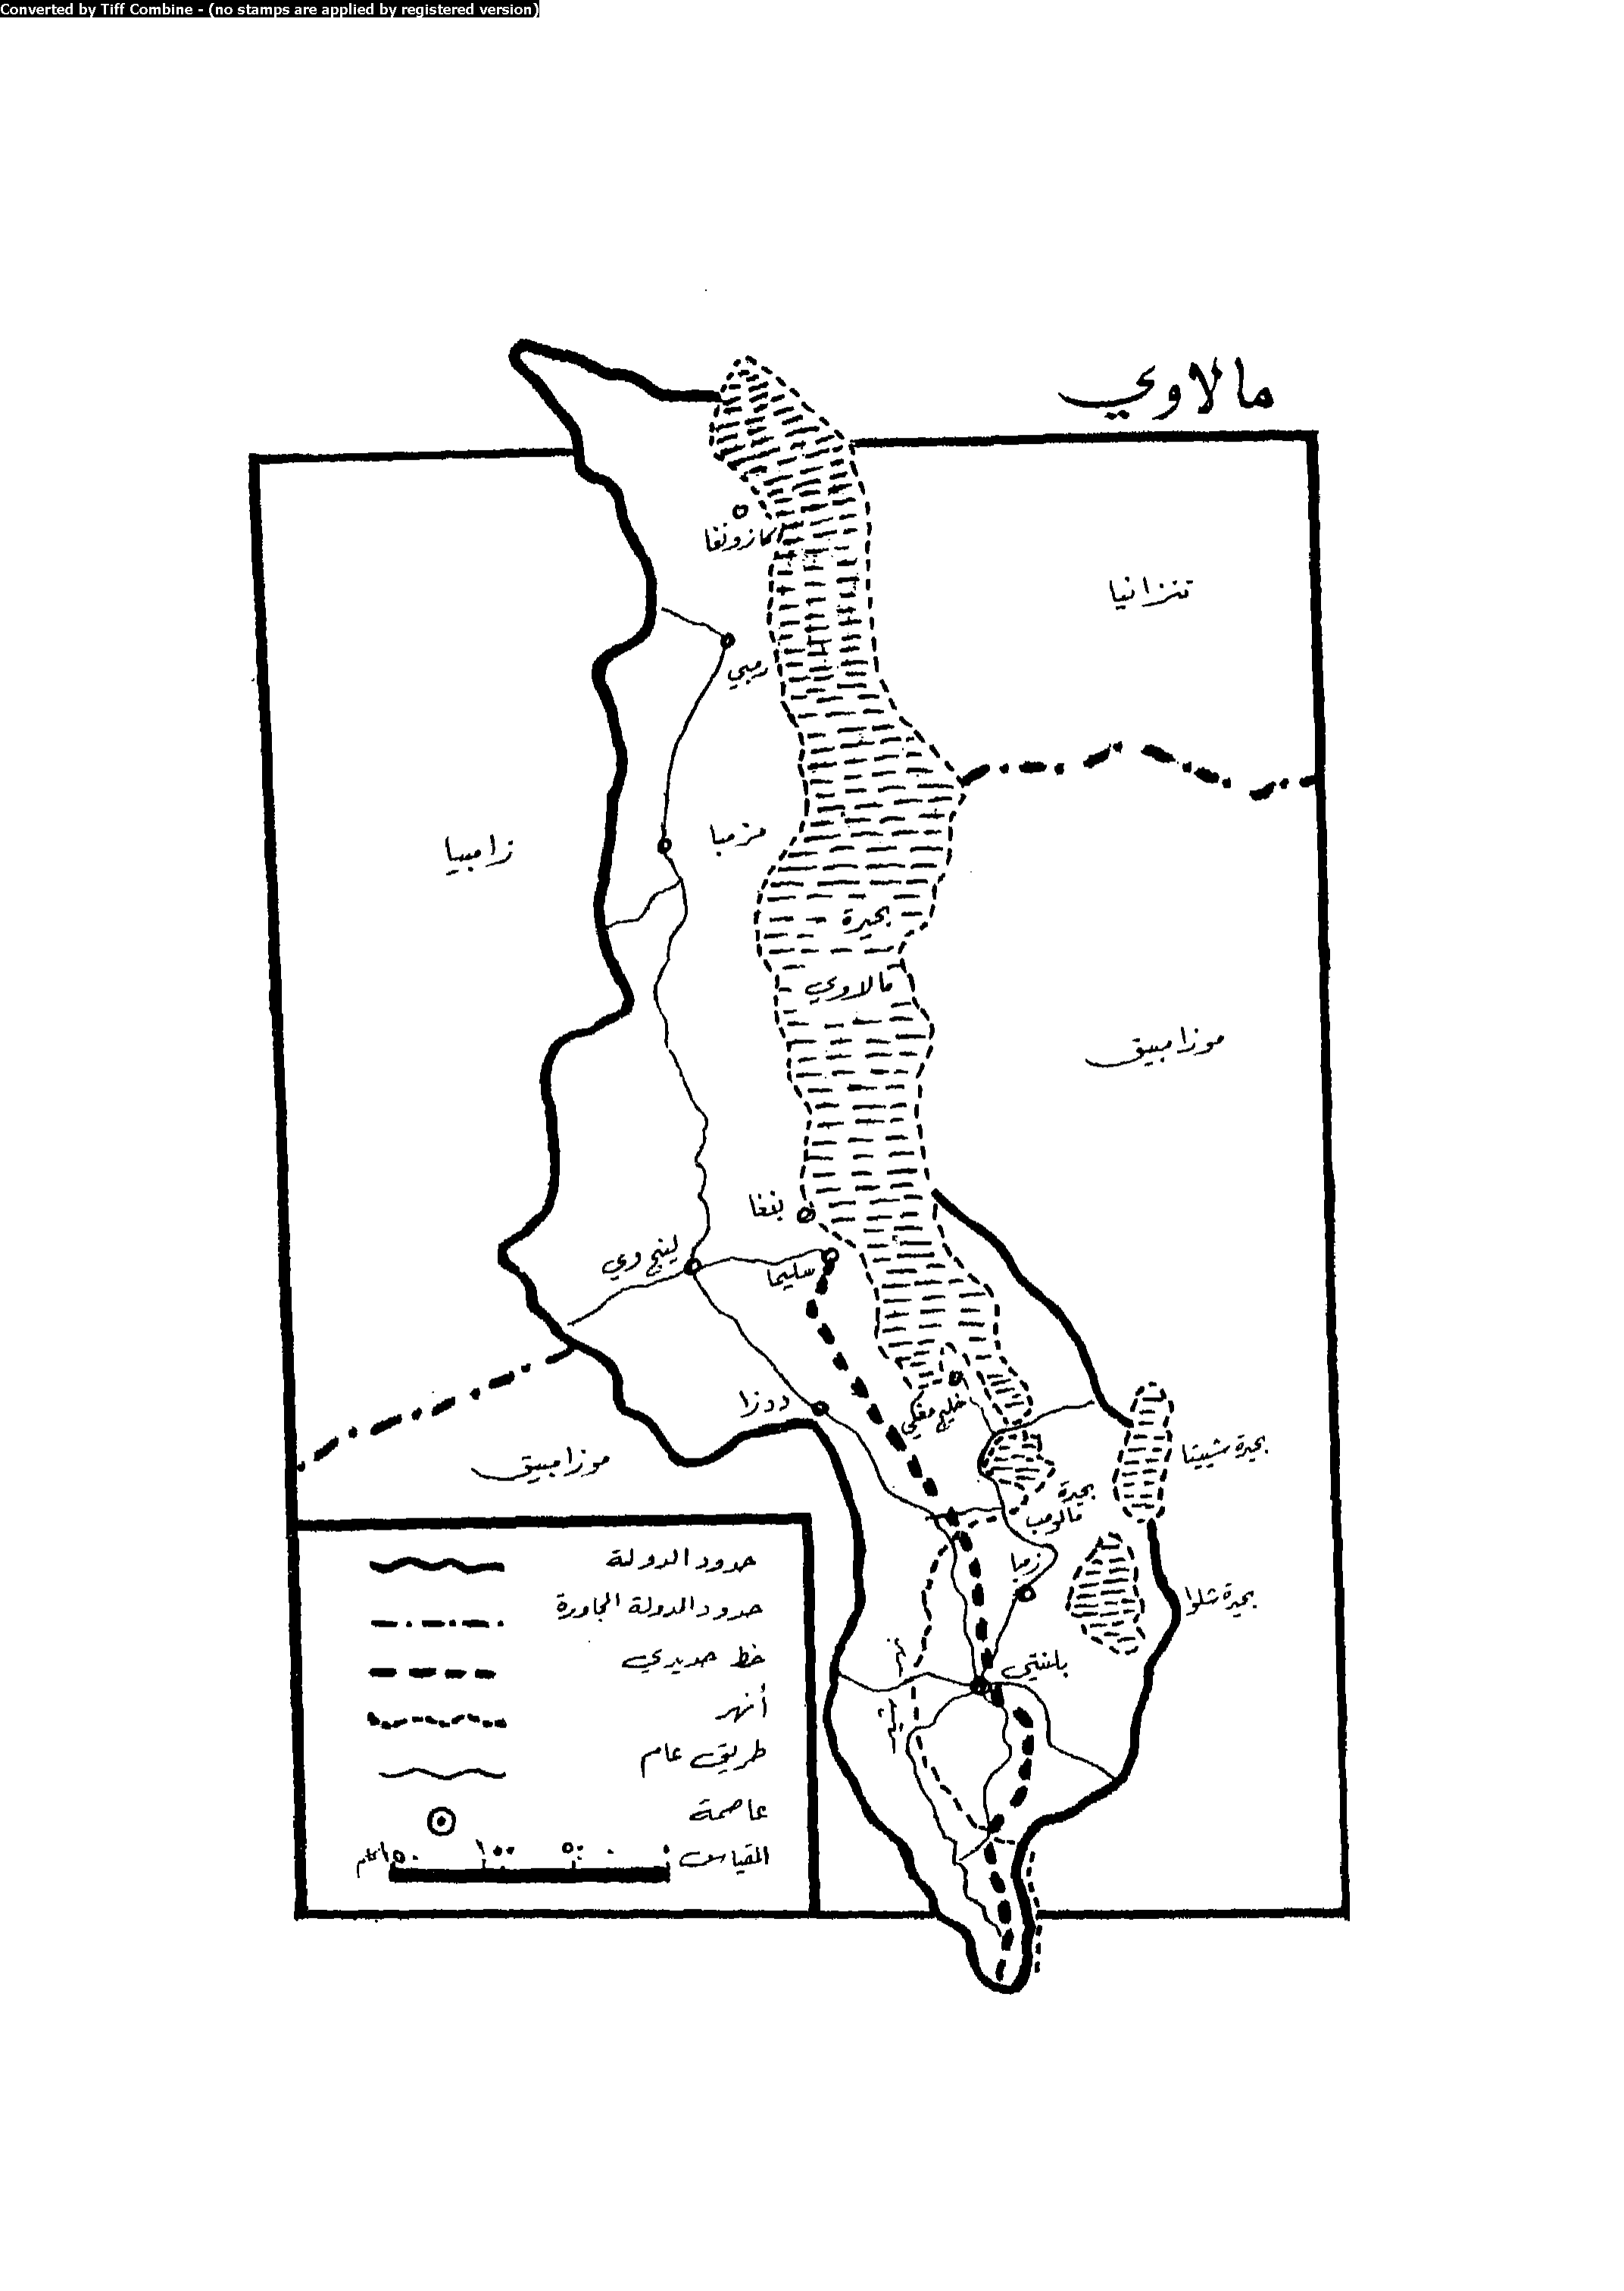 Converted by Tiff Combine - (no stamps are applied by registered version)
مالاوي
كازونغا
تنزانيا
رمبي
مزمبا
زامبيا
بحيرة
مالاوي
موزامبيق
بنغا
لينج وي
سليما
ددزا
خليج
موزامبيق
بحيرة شيتا
بحيرة
مالومب
زمبا
بحيرة شلوا
بلنتي
نهر
حدود الدولة
حدود الدولة المجاورة
خط حديدي
أنهر
طريق عام
عاصمة
المقياس ٠ ٥٠ ١٠٠ ١٥٠ كم